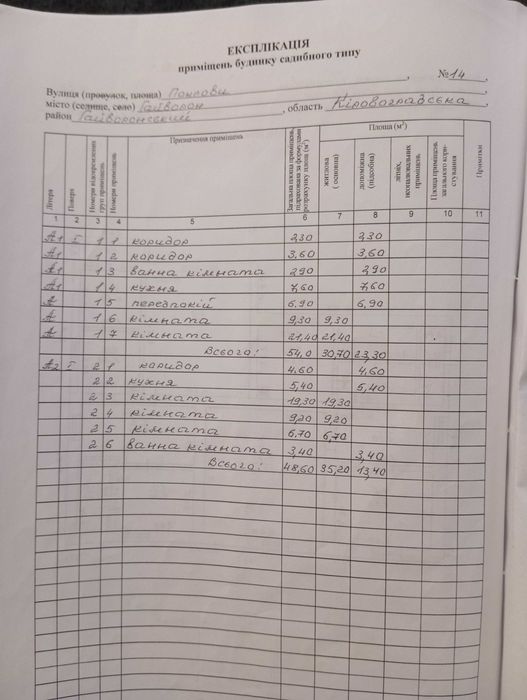 ЕКСПЛІКАЦІЯ
приміщень будинку садибного типу
№ 14
Вулиця (провулок, площа)
місто (селище, село) Гайворон, область Кіровоградська
район Гайворонський
Літера Поверх Номери відокремлених груп приміщень Номери приміщень Призначення приміщень Загальна площа приміщень, підрахована за формулами розрахунку площ (м²) Площа (м²) Примітки
житлова (основна) допоміжна (підсобна) літніх, неопалювальних приміщень Площа приміщень загального користування
1 2 3 4 5 6 7 8 9 10 11
А1 І 1 1 коридор 2,30 2,30
А1 1 2 коридор 3,60 3,60
А1 1 3 ванна кімната 2,90 2,90
А1 1 4 кухня 7,60 7,60
А 1 5 передпокій 6,90 6,90
А 1 6 кімната 9,30 9,30
А 1 7 кімната 21,40 21,40
Всього: 54,0 30,70 23,30
А2 І 2 1 коридор 4,60 4,60
2 2 кухня 5,40 5,40
2 3 кімната 19,30 19,30
2 4 кімната 9,20 9,20
2 5 кімната 6,70 6,70
2 6 ванна кімната 3,40 3,40
Всього: 48,60 35,20 13,40